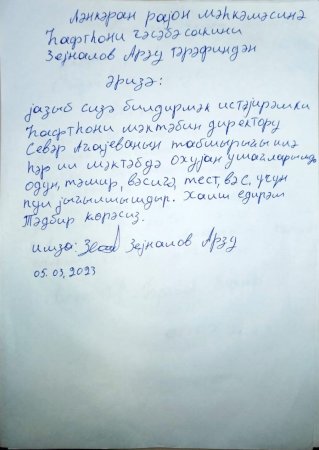 Ләнкәран рајон мәһкәмәсинә
Һафтһони гәсәбә сакини
Зејналов Арзу тәрәфиндән
Әризә:
јазыб сизә билдирмәк истәјирәмки
Һафтһони мәктәбин директору
Севәр Агајеванын табшырыгы илә
һәр ил мәктәбдә охујан ушагларындан
одун, тәмир, вәсигә, тест, вә с. үчүн
пул јығылмышдыр. Хаиш едирәм
Тәдбир көрәсиз.
имзә: Зејналов Арзу
05.03.2023